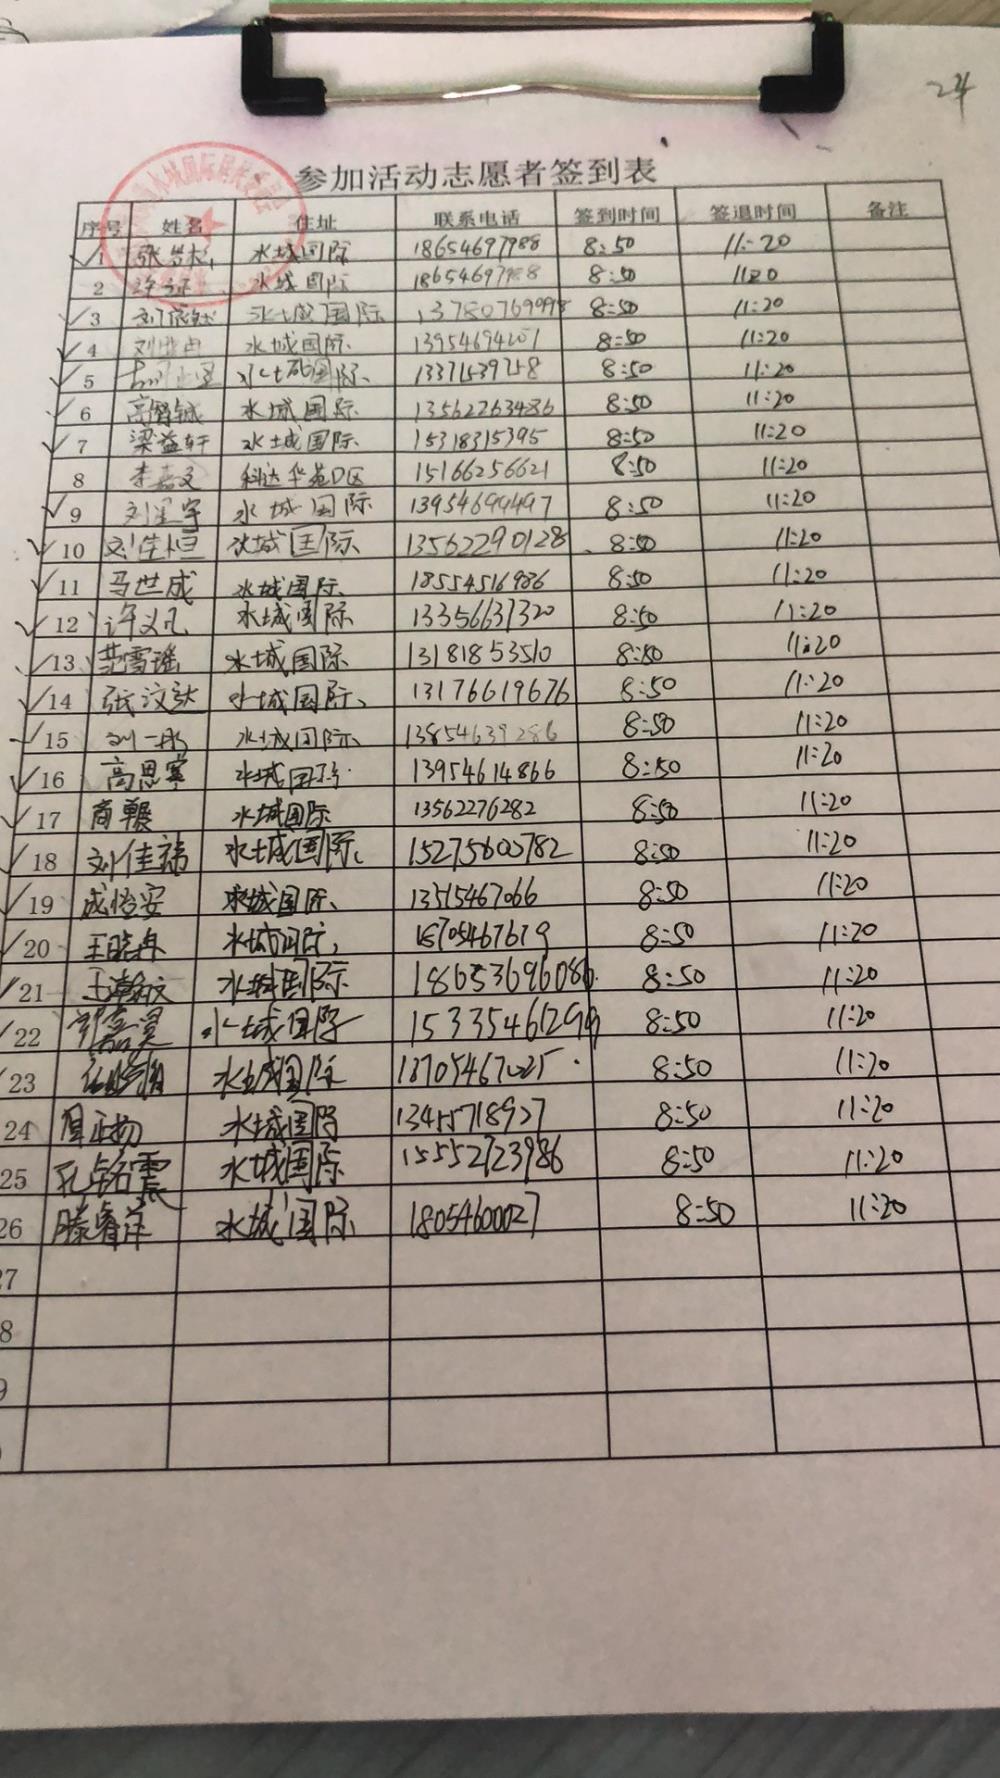 24
参加活动志愿者签到表
序号 姓名 住址 联系电话 签到时间 签退时间 备注
1 水城国际 18654697988 8:50 11:20
2 水城国际 8:50 11:20
3 水城国际 8:50 11:20
4 水城国际 8:50 11:20
5 水城国际 8:50 11:20
6 水城国际 13562263486 8:50 11:20
7 梁益轩 水城国际 15318315395 8:50 11:20
8 李嘉文 科达华苑D区 15166256621 8:50 11:20
9 刘星宇 水城国际 13954699497 8:50 11:20
10 刘佳恒 水城国际 13562290128 8:50 11:20
11 马世成 水城国际 18554516986 8:50 11:20
12 许义凡 水城国际 13356631320 8:50 11:20
13 范雪瑶 水城国际 13181853510 8:50 11:20
14 张汶达 水城国际 13176619676 8:50 11:20
15 刘一彤 水城国际 13854639286 8:50 11:20
16 高思寒 水城国际 13954614866 8:50 11:20
17 水城国际 13562276282 8:50 11:20
18 刘佳瑞 水城国际 15275600782 8:50 11:20
19 水城国际 13515467066 8:50 11:20
20 王晓冉 水城国际 8:50 11:20
21 水城国际 18653696086 8:50 11:20
22 水城国际 15335461299 8:50 11:20
23 水城国际 8:50 11:20
24 水城国际 13455718927 8:50 11:20
25 水城国际 15552723986 8:50 11:20
26 滕睿洋 水城国际 18054600027 8:50 11:20
27
8
9